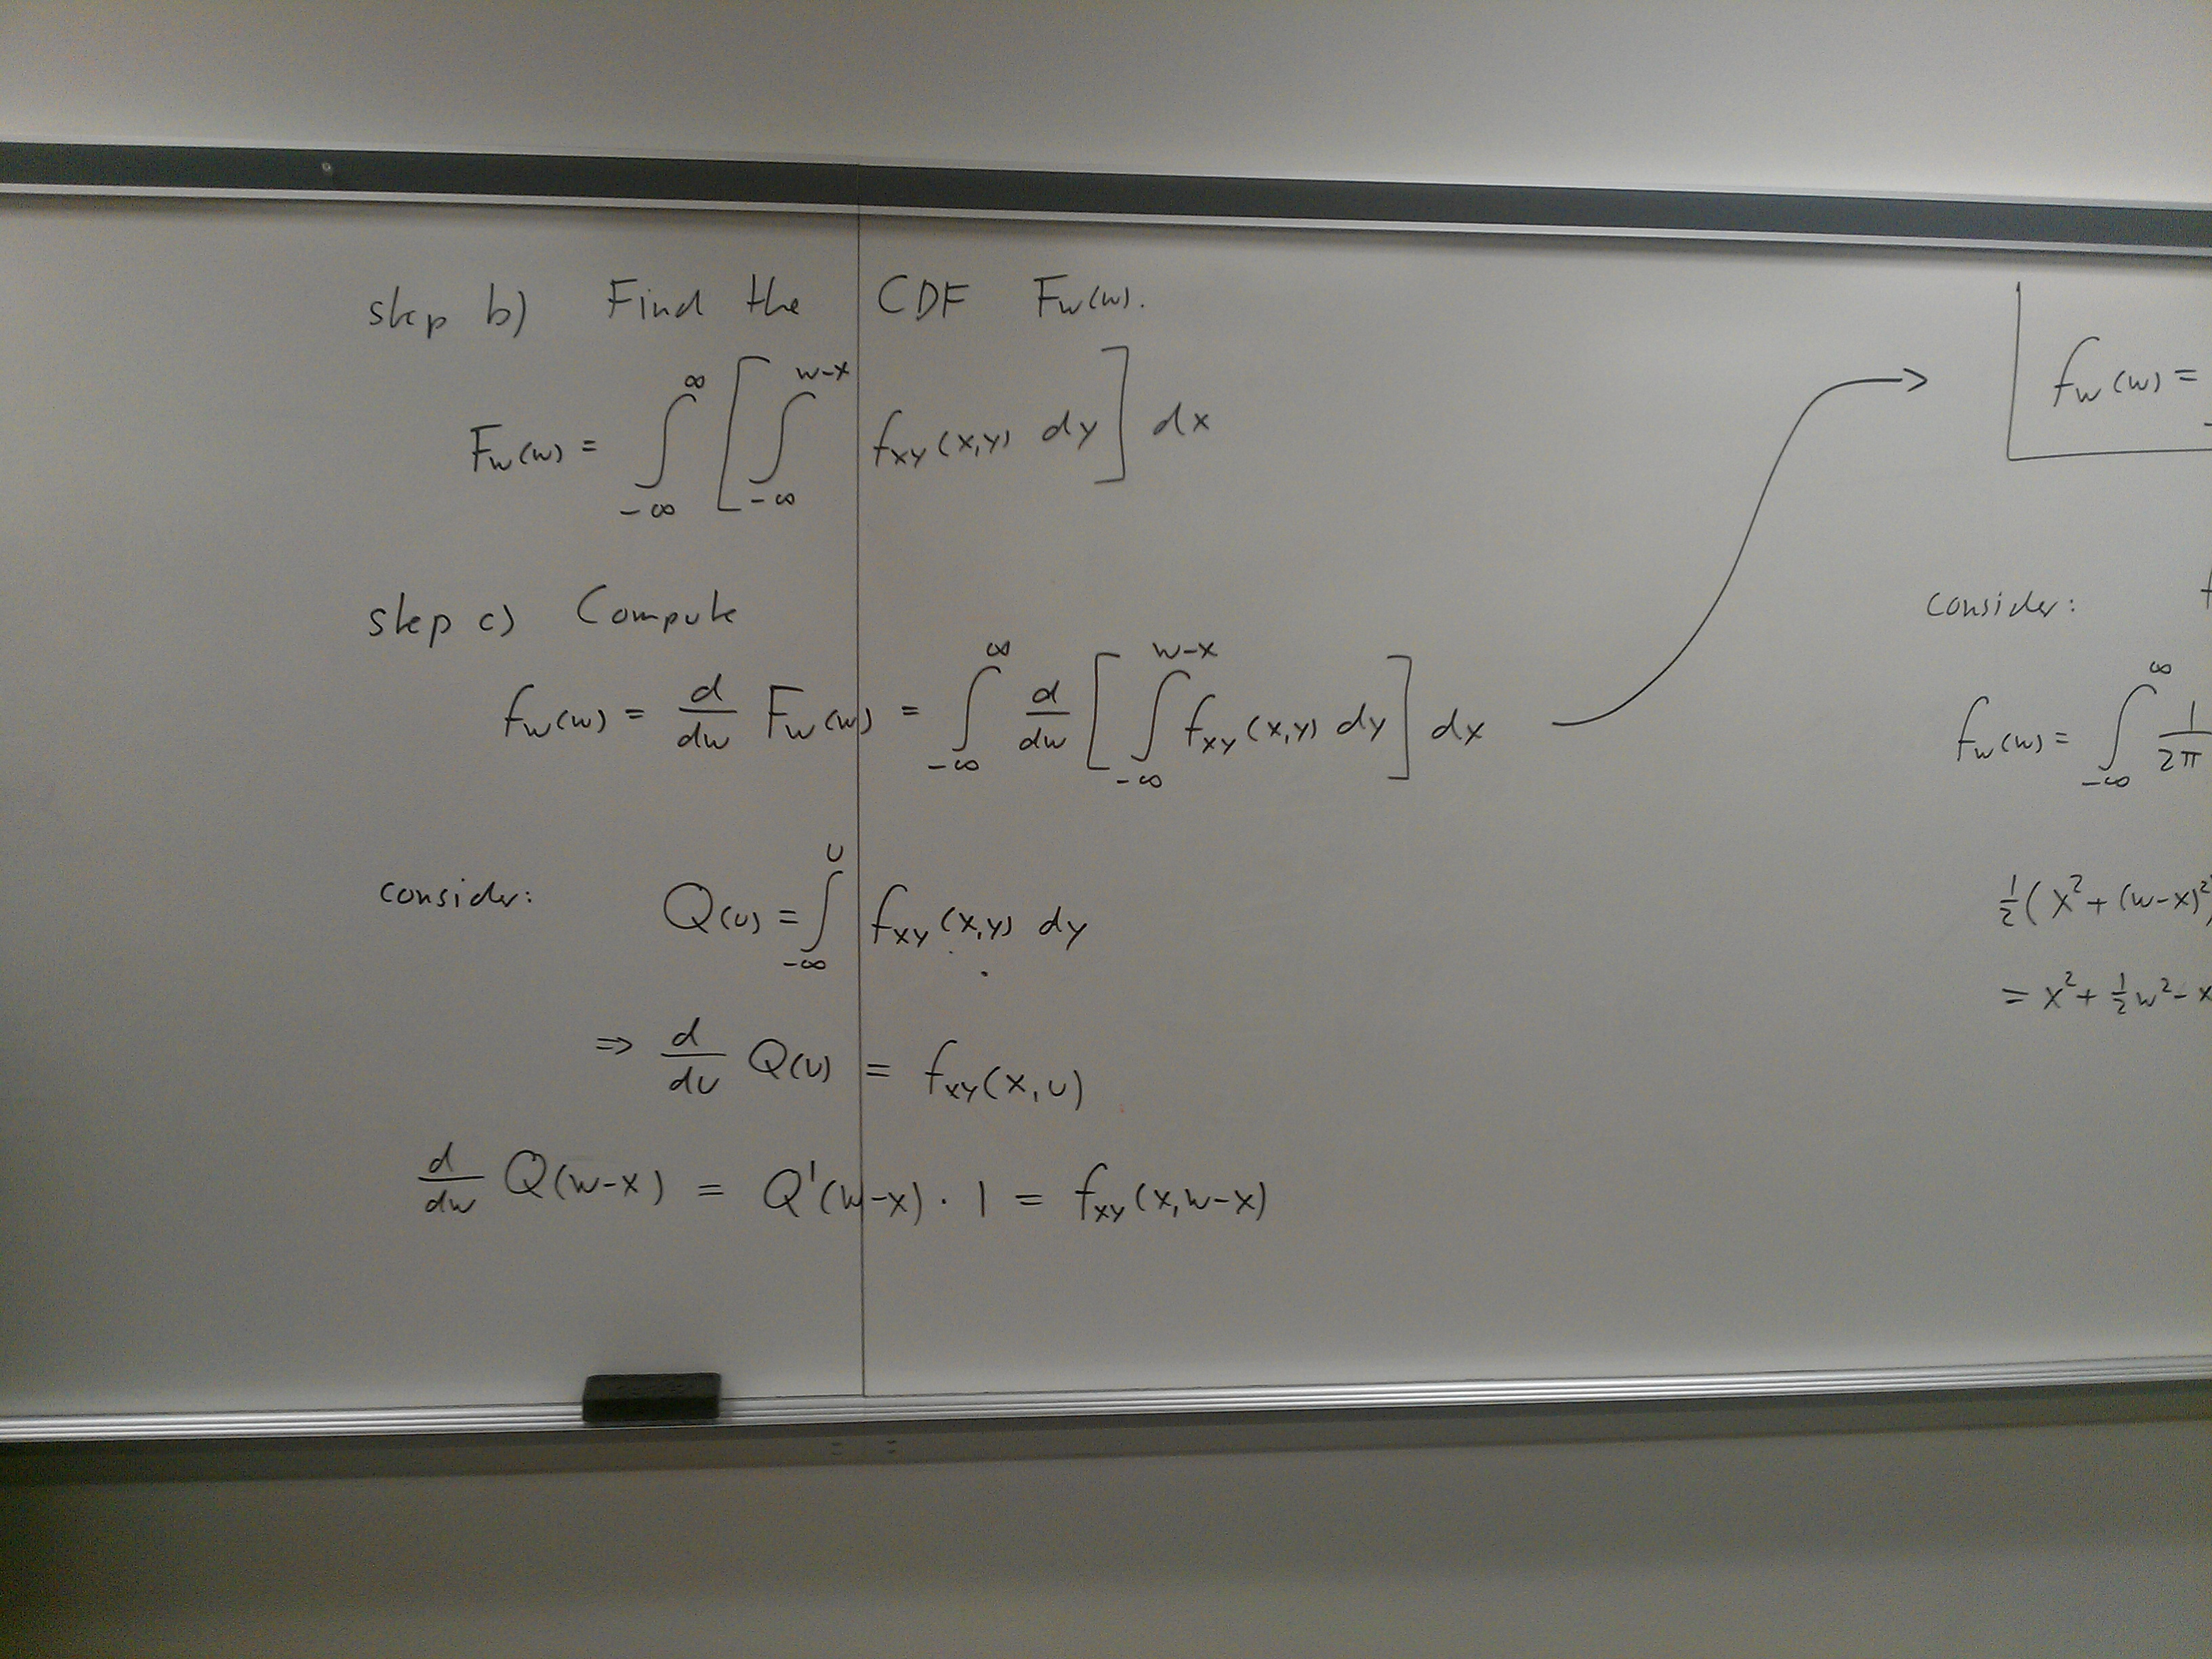 step b) Find the CDF F_W(w).
F_W(w) = ∫_{-∞}^{∞} [ ∫_{-∞}^{w-x} f_{XY}(x,y) dy ] dx
step c) Compute
f_W(w) = d/dw F_W(w) = ∫_{-∞}^{∞} d/dw [ ∫_{-∞}^{w-x} f_{XY}(x,y) dy ] dx
consider: Q(u) = ∫_{-∞}^{u} f_{XY}(x,y) dy
⇒ d/du Q(u) = f_{XY}(x,u)
d/dw Q(w-x) = Q'(w-x) · 1 = f_{XY}(x,w-x)
f_W(w) =
consider:
f_W(w) = ∫_{-∞}^{∞} 1/2π
1/2 ( x² + (w-x)²
= x² + 1/2 w² - x